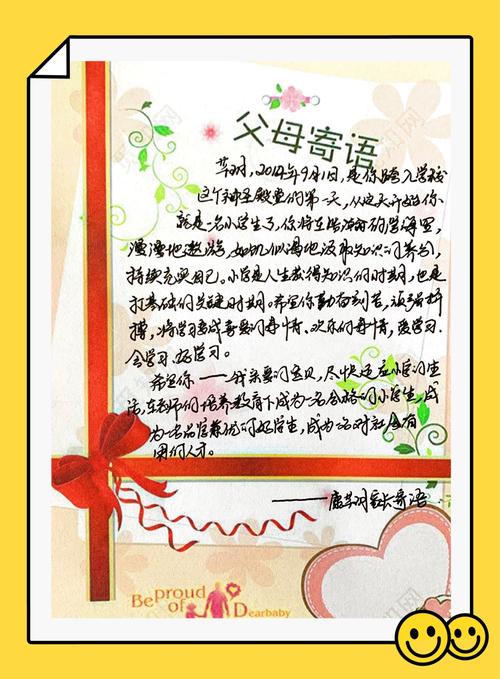 父母寄语
草羽，2014年9月1日，是你踏入学校
这个神圣殿堂的第一天，从这天开始你
就是一名小学生了，你将在浩瀚的学海里，
漫漫地遨游，如饥似渴地汲取知识的养分，
持续充实自己。小学是人生获得知识的时期，也是
打基础的关键时期。希望你勤奋刻苦，顽强拼
搏，将学习变成喜爱的事情、欢乐的事情，爱学习、
会学习、好学习。
希望你——我亲爱的宝贝，尽快适应小学的生
活，在老师们的培养教育下成为一名合格的小学生，成
为一名品学兼优的好学生，成为一名对社会有
用的人才。
——唐草羽家长寄语
Be proud
of Dearbaby